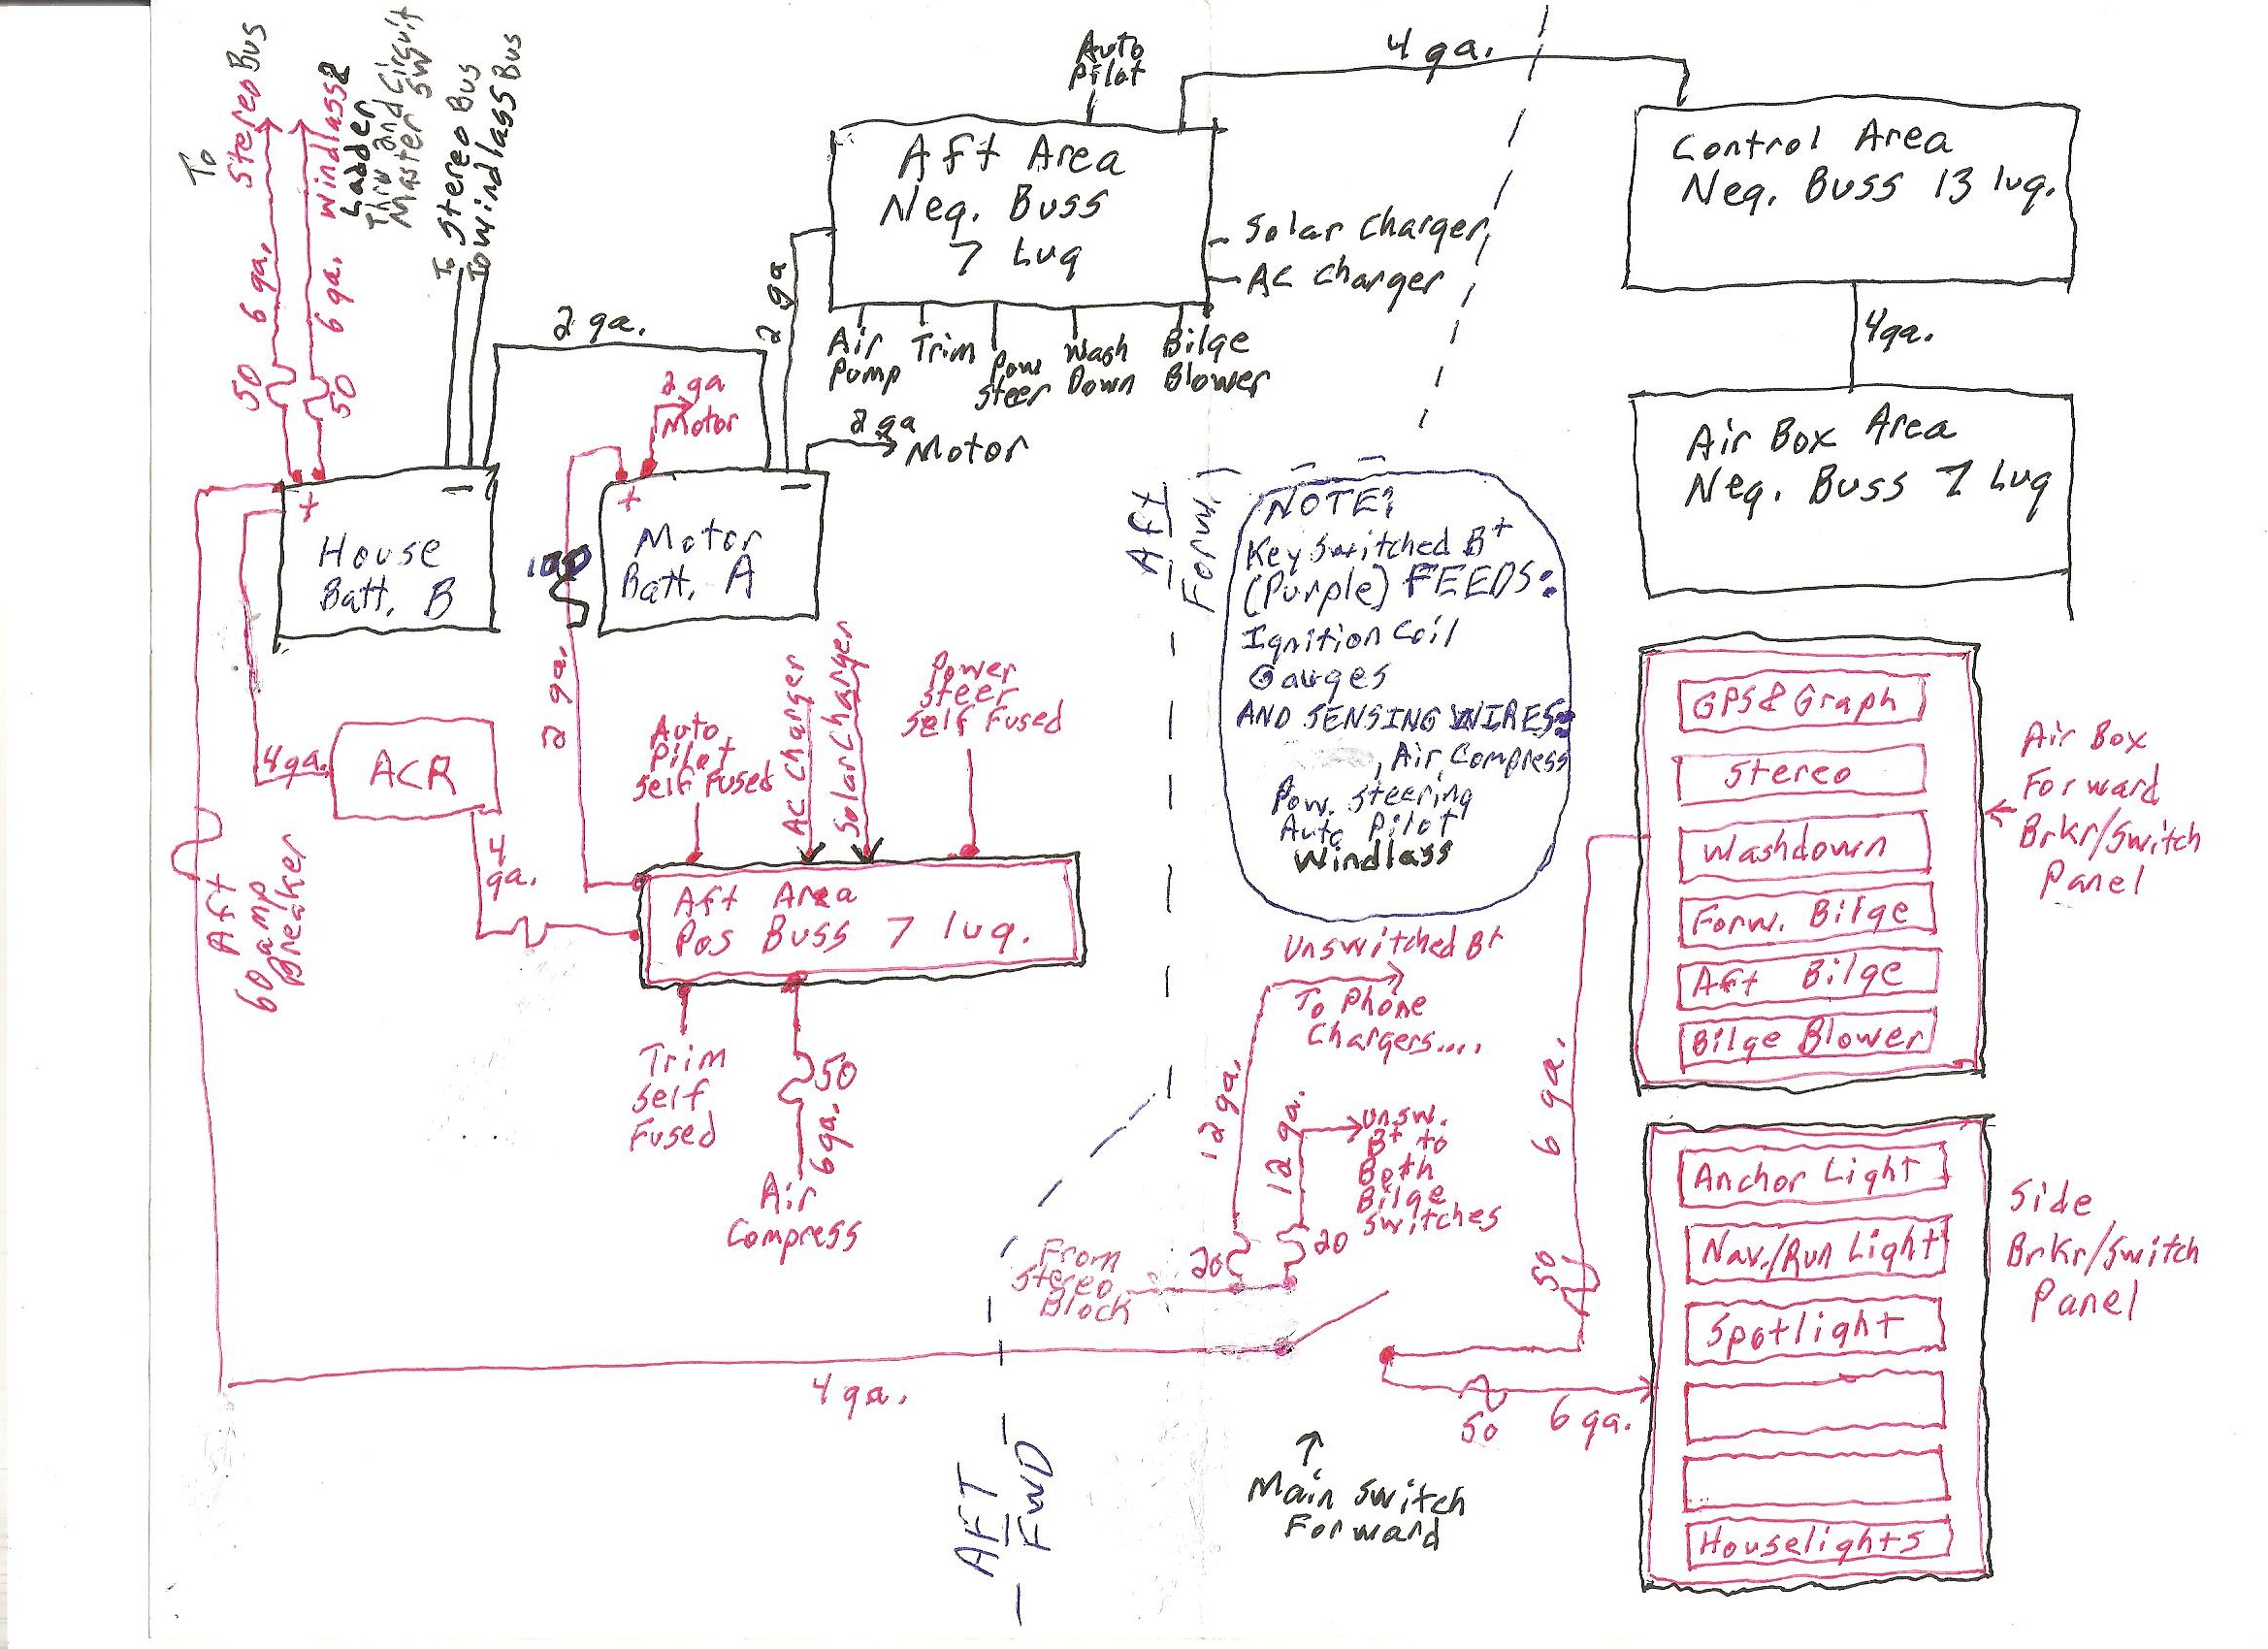 To
Stereo Bus
6 ga.
50
Windlass &
Ladder
Thru 2nd Circuit
Master SW
6 ga.
50
To Stereo Bus
To Windlass Bus
2 ga.
2 ga
Motor
2 ga
2 ga
Motor
Auto
Pilot
4 ga.
Aft Area
Neg. Buss
7 Lug
Solar Charger
AC Charger
Air
Pump
Trim
Pow
Steer
Wash
Down
Bilge
Blower
Control Area
Neg. Buss 13 lug.
4 ga.
Air Box Area
Neg. Buss 7 Lug
+
-
House
Batt. B
100
+
-
Motor
Batt. A
Aft
Forw.
NOTE:
Key Switched B+
(Purple) FEEDS:
Ignition Coil
Gauges
AND SENSING WIRES:
, Air Compress
Pow. Steering
Auto Pilot
Windlass
4 ga.
ACR
4
ga.
2 ga.
Auto
Pilot
Self Fused
AC Charger
Solar Charger
Power
Steer
Self Fused
Aft Area
Pos Buss 7 lug.
Aft
60 amp
Breaker
Trim
Self
Fused
50
6 ga.
Air
Compress
Unswitched B+
To Phone
Chargers....
12 ga.
20
12 ga.
20
Unsw.
B+ to
Both
Bilge
Switches
From
Stereo
Block
4 ga.
6 ga.
50
50
6 ga.
Main Switch
Forward
AFT
FWD
GPS & Graph
Stereo
Washdown
Forw. Bilge
Aft Bilge
Bilge Blower
Air Box
Forward
Brkr/Switch
Panel
Anchor Light
Nav./Run Light
Spotlight
Houselights
Side
Brkr/Switch
Panel